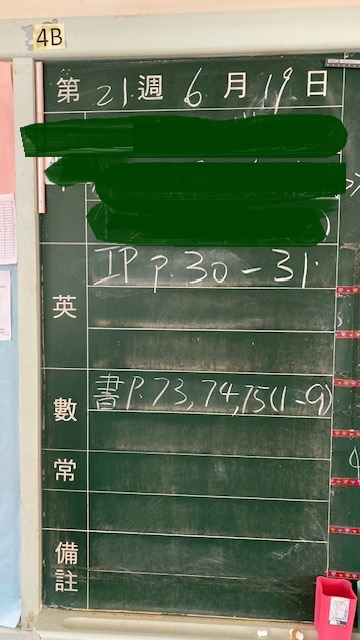 4B
第 21 週 6 月 19 日
英 IP P.30-31.
數 書P.73,74,75(1-9)
常
備註